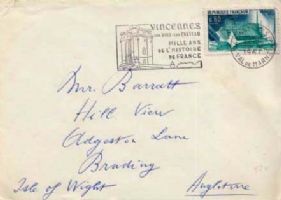 VINCENNES
SON BOIS SON CHATEAU
MILLE ANS
DE L'HISTOIRE
DE FRANCE
REPUBLIQUE FRANCAISE
0,60
VAL DE MARNE
Mr. Barratt
Hill View
Adgestor Lane
Brading
Isle of Wight
Angleterre